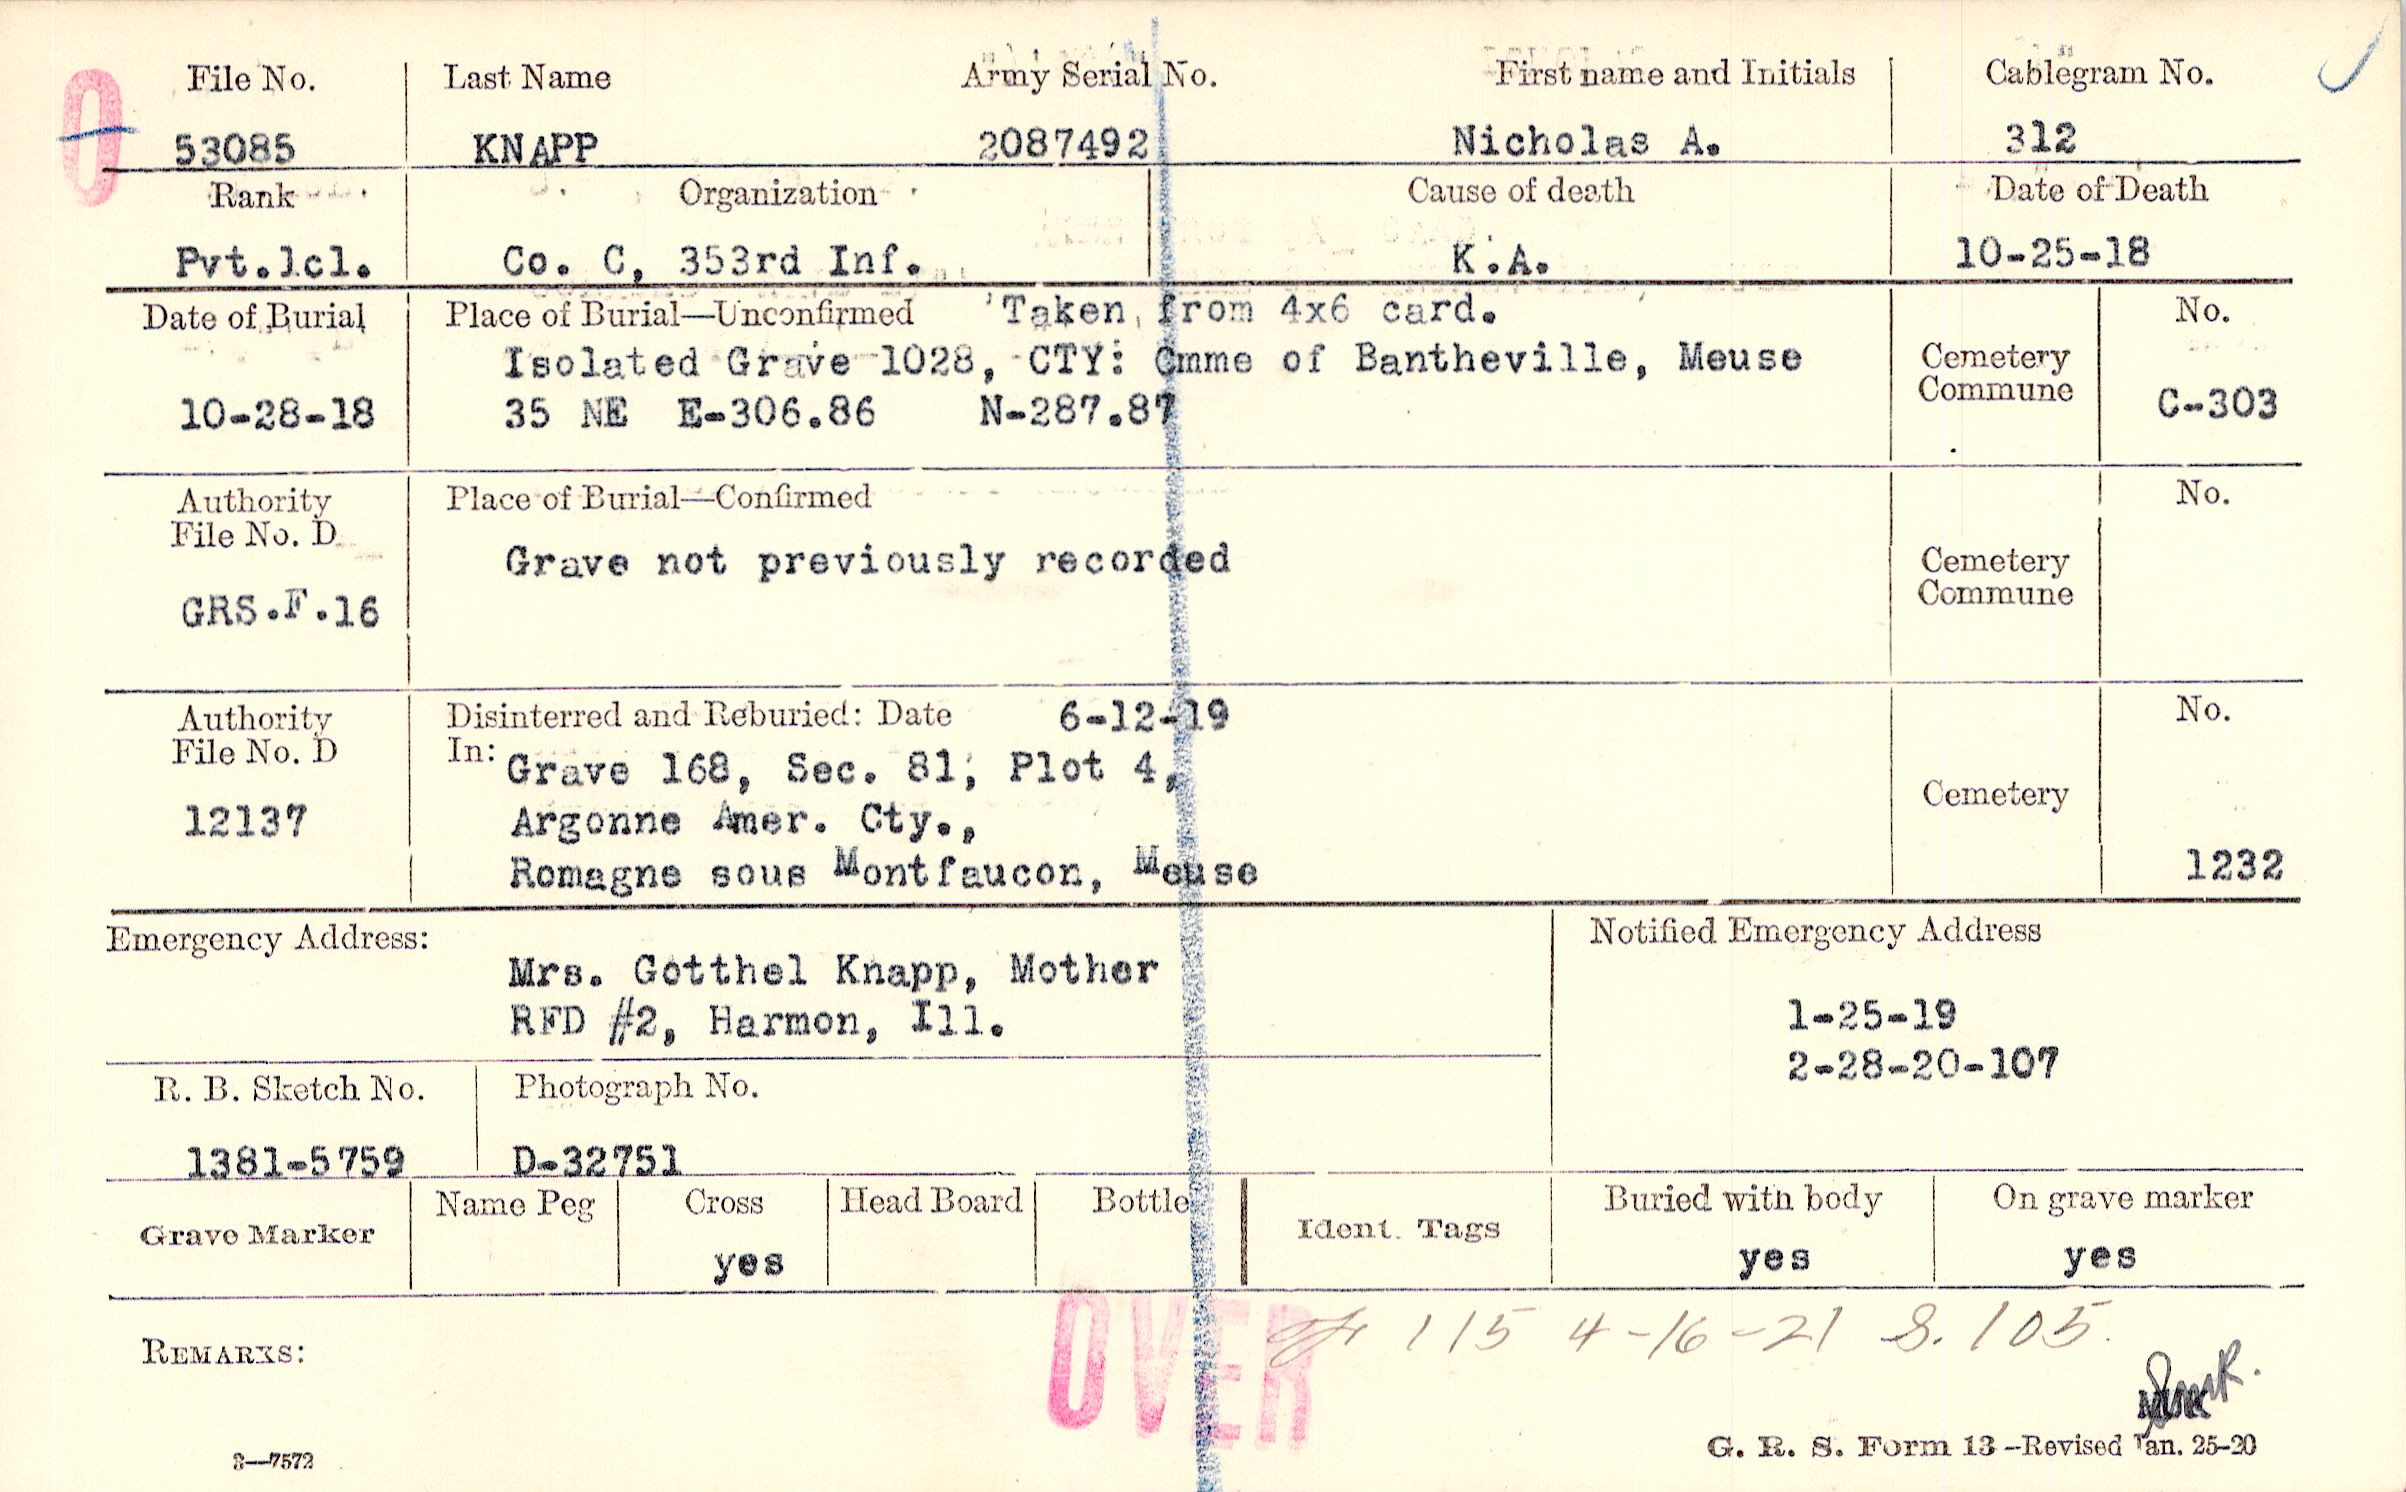 O
File No. Last Name Army Serial No. First name and Initials Cablegram No.
53085 KNAPP 2087492 Nicholas A. 312
Rank Organization Cause of death Date of Death
Pvt.1cl. Co. C, 353rd Inf. K.A. 10-25-18
Date of Burial Place of Burial—Unconfirmed 'Taken from 4x6 card. No.
Isolated Grave 1028, CTY: Cmme of Bantheville, Meuse Cemetery
Commune
10-28-18 35 NE E-306.86 N-287.87 C-303
Authority Place of Burial—Confirmed No.
File No. D
Grave not previously recorded Cemetery
Commune
GRS.F.16
Authority Disinterred and Reburied: Date 6-12-19 No.
File No. D In: Grave 168, Sec. 81, Plot 4,
Cemetery
12137 Argonne Amer. Cty.,
Romagne sous Montfaucon, Meuse 1232
Emergency Address: Notified Emergency Address
Mrs. Gotthel Knapp, Mother
RFD #2, Harmon, Ill. 1-25-19
2-28-20-107
R. B. Sketch No. Photograph No.
1381-5759 D-32751
Grave Marker Name Peg Cross Head Board Bottle Ident. Tags Buried with body On grave marker
yes yes yes
OVER
115 4-16-21 S. 105.
REMARKS:
3—7572 G. R. S. Form 13—Revised Jan. 25-20